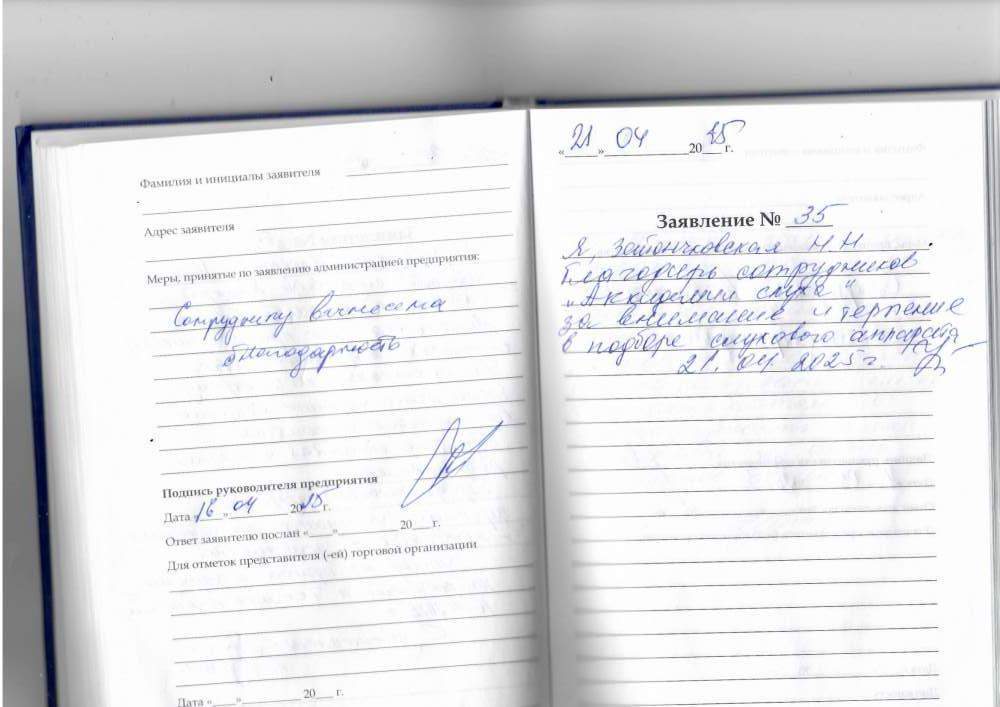 Фамилия и инициалы заявителя
Адрес заявителя
Меры, принятые по заявлению администрацией предприятия:
Сотруднику вынесена
благодарность
Подпись руководителя предприятия
Дата 16 » 04 2025 г.
Ответ заявителю послан «____»__________ 20___ г.
Для отметок представителя (-ей) торговой организации
Дата «____»__________ 20___ г.
« 21 » 04 2025 г.
Заявление № 35
Я, Зайончковская Н.Н
благодарю сотрудников
"Академия слуха"
за внимание и терпение
в подборе слухового аппарата
21. 04. 2025г.